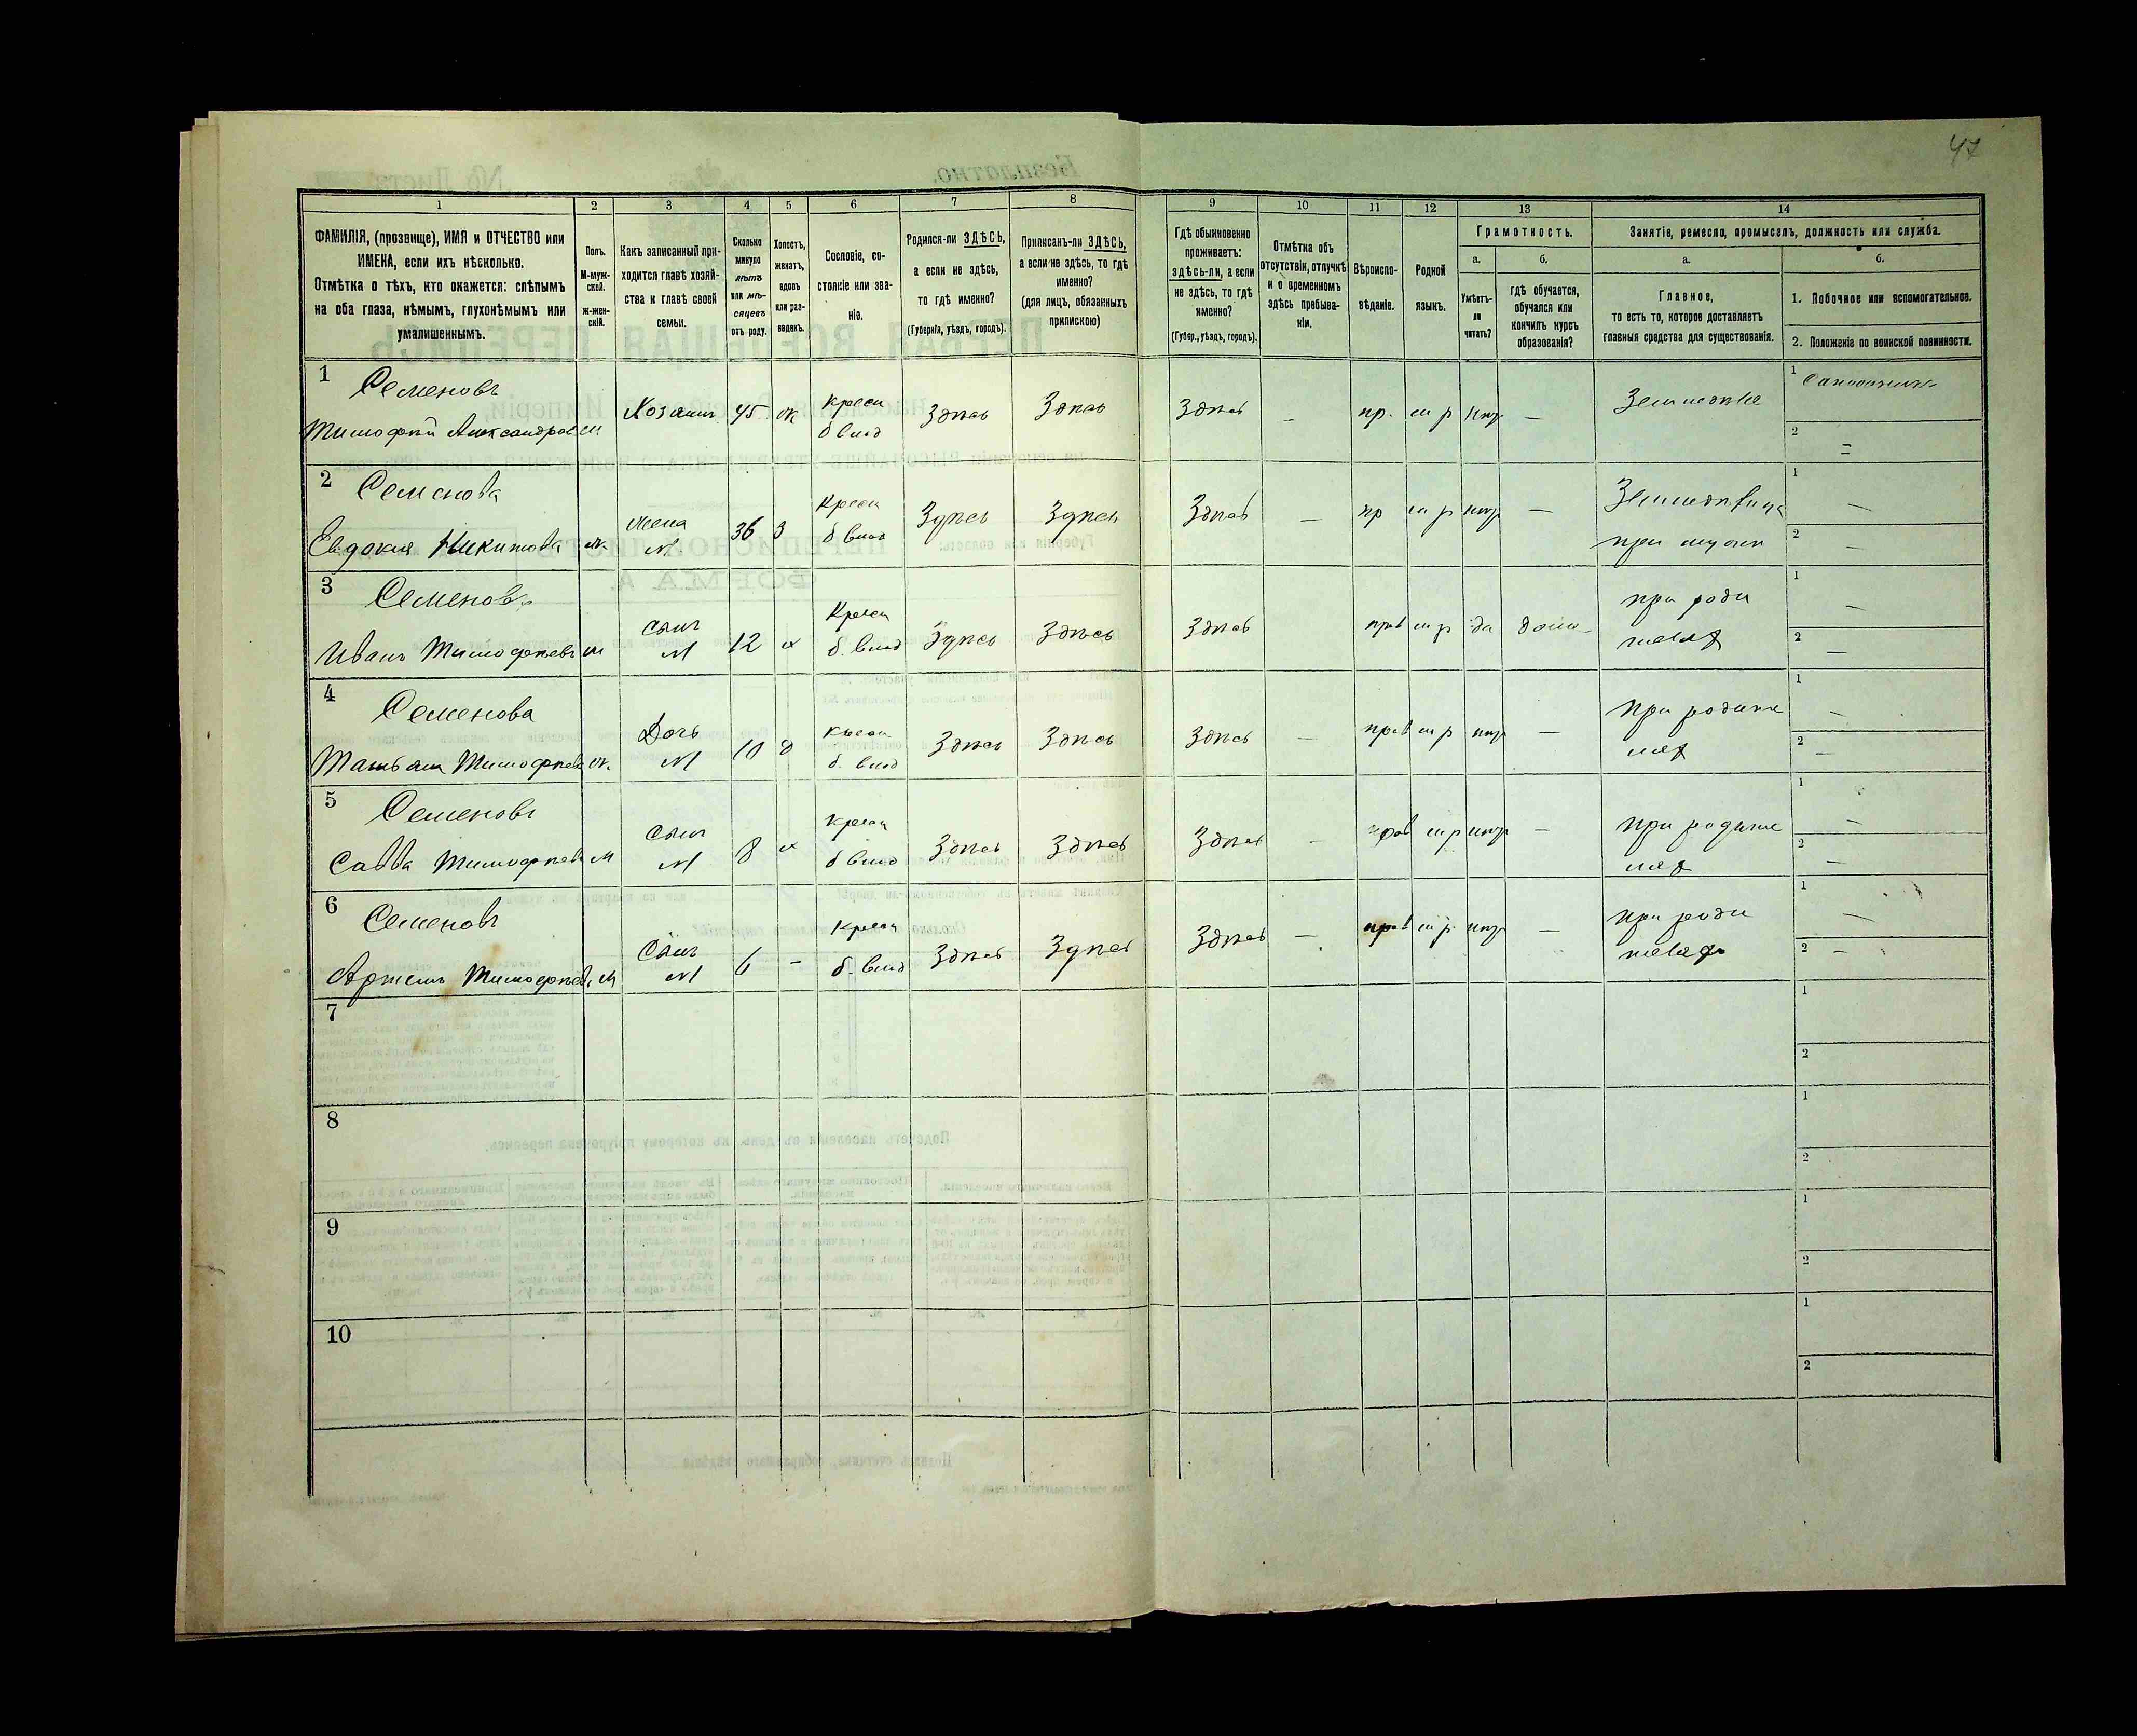 47
1 2 3 4 5 6 7 8 9 10 11 12 13 14
ФАМИЛІЯ, (прозвище), ИМЯ и ОТЧЕСТВО или
ИМЕНА, если ихъ нѣсколько.
Отмѣтка о тѣхъ, кто окажется: слѣпымъ
на оба глаза, нѣмымъ, глухонѣмымъ или
умалишеннымъ.
Полъ.
М-муж-
ской.
ж-жен-
скій.
Какъ записанный при-
ходится главѣ хозяй-
ства и главѣ своей
семьи.
Сколько
минуло
лѣтъ
или мѣ-
сяцевъ
отъ роду.
Холостъ,
женатъ,
вдовъ
или раз-
веденъ.
Сословіе, со-
стояніе или зва-
ніе.
Родился-ли ЗДѢСЬ,
а если не здѣсь,
то гдѣ именно?
(Губернія, уѣздъ, городъ).
Приписанъ-ли ЗДѢСЬ,
а если не здѣсь, то гдѣ
именно?
(для лицъ, обязанныхъ
припискою)
Гдѣ обыкновенно
проживаетъ:
здѣсь-ли, а если
не здѣсь, то гдѣ
именно?
(Губер., уѣздъ, городъ).
Отмѣтка объ
отсутствіи, отлучкѣ
и о временномъ
здѣсь пребыва-
ніи.
Вѣроиспо-
вѣданіе.
Родной
языкъ.
Грамотность.
а.
Умѣетъ-
ли
читать?
б.
гдѣ обучается,
обучался или
кончилъ курсъ
образованія?
Занятіе, ремесло, промыселъ, должность или служба.
а.
Главное,
то есть то, которое доставляетъ
главныя средства для существованія.
б.
1. Побочное или вспомогательное.
2. Положеніе по воинской повинности.
1 Семеновъ
Тимофѣй Александров м Хозяинъ 45 ж Крест Здѣсь Здѣсь Здѣсь — пр. — 1
б влад 2 =
2 Семенова
Евдокия Никитова ж. жена 36 з Крест Здѣсь Здѣсь Здѣсь — пр 1 —
М б влад при мужи 2 —
3 Семеновъ
Иванъ Тимофѣевъ м сынъ 12 х Крест Здѣсь Здѣсь Здѣсь прав да дома при роди 1 —
М б. влад телях 2 —
4 Семенова
Тимофѣев ж. Дочь 10 Крест Здѣсь Здѣсь Здѣсь — прав — при родите 1 —
М б. влад лях 2 —
5 Семеновъ
Савва Тимофѣев м Сынъ 8 х Крест Здѣсь Здѣсь Здѣсь — прав — при родите 1 —
М б влад лях 2 —
6 Семеновъ
Артемъ Тимофѣев м Сынъ 6 — Крест Здѣсь Здѣсь Здѣсь — прав — при роди 1 —
М б. влад телях 2 —
7 1
2
8 1
2
9 1
2
10 1
2